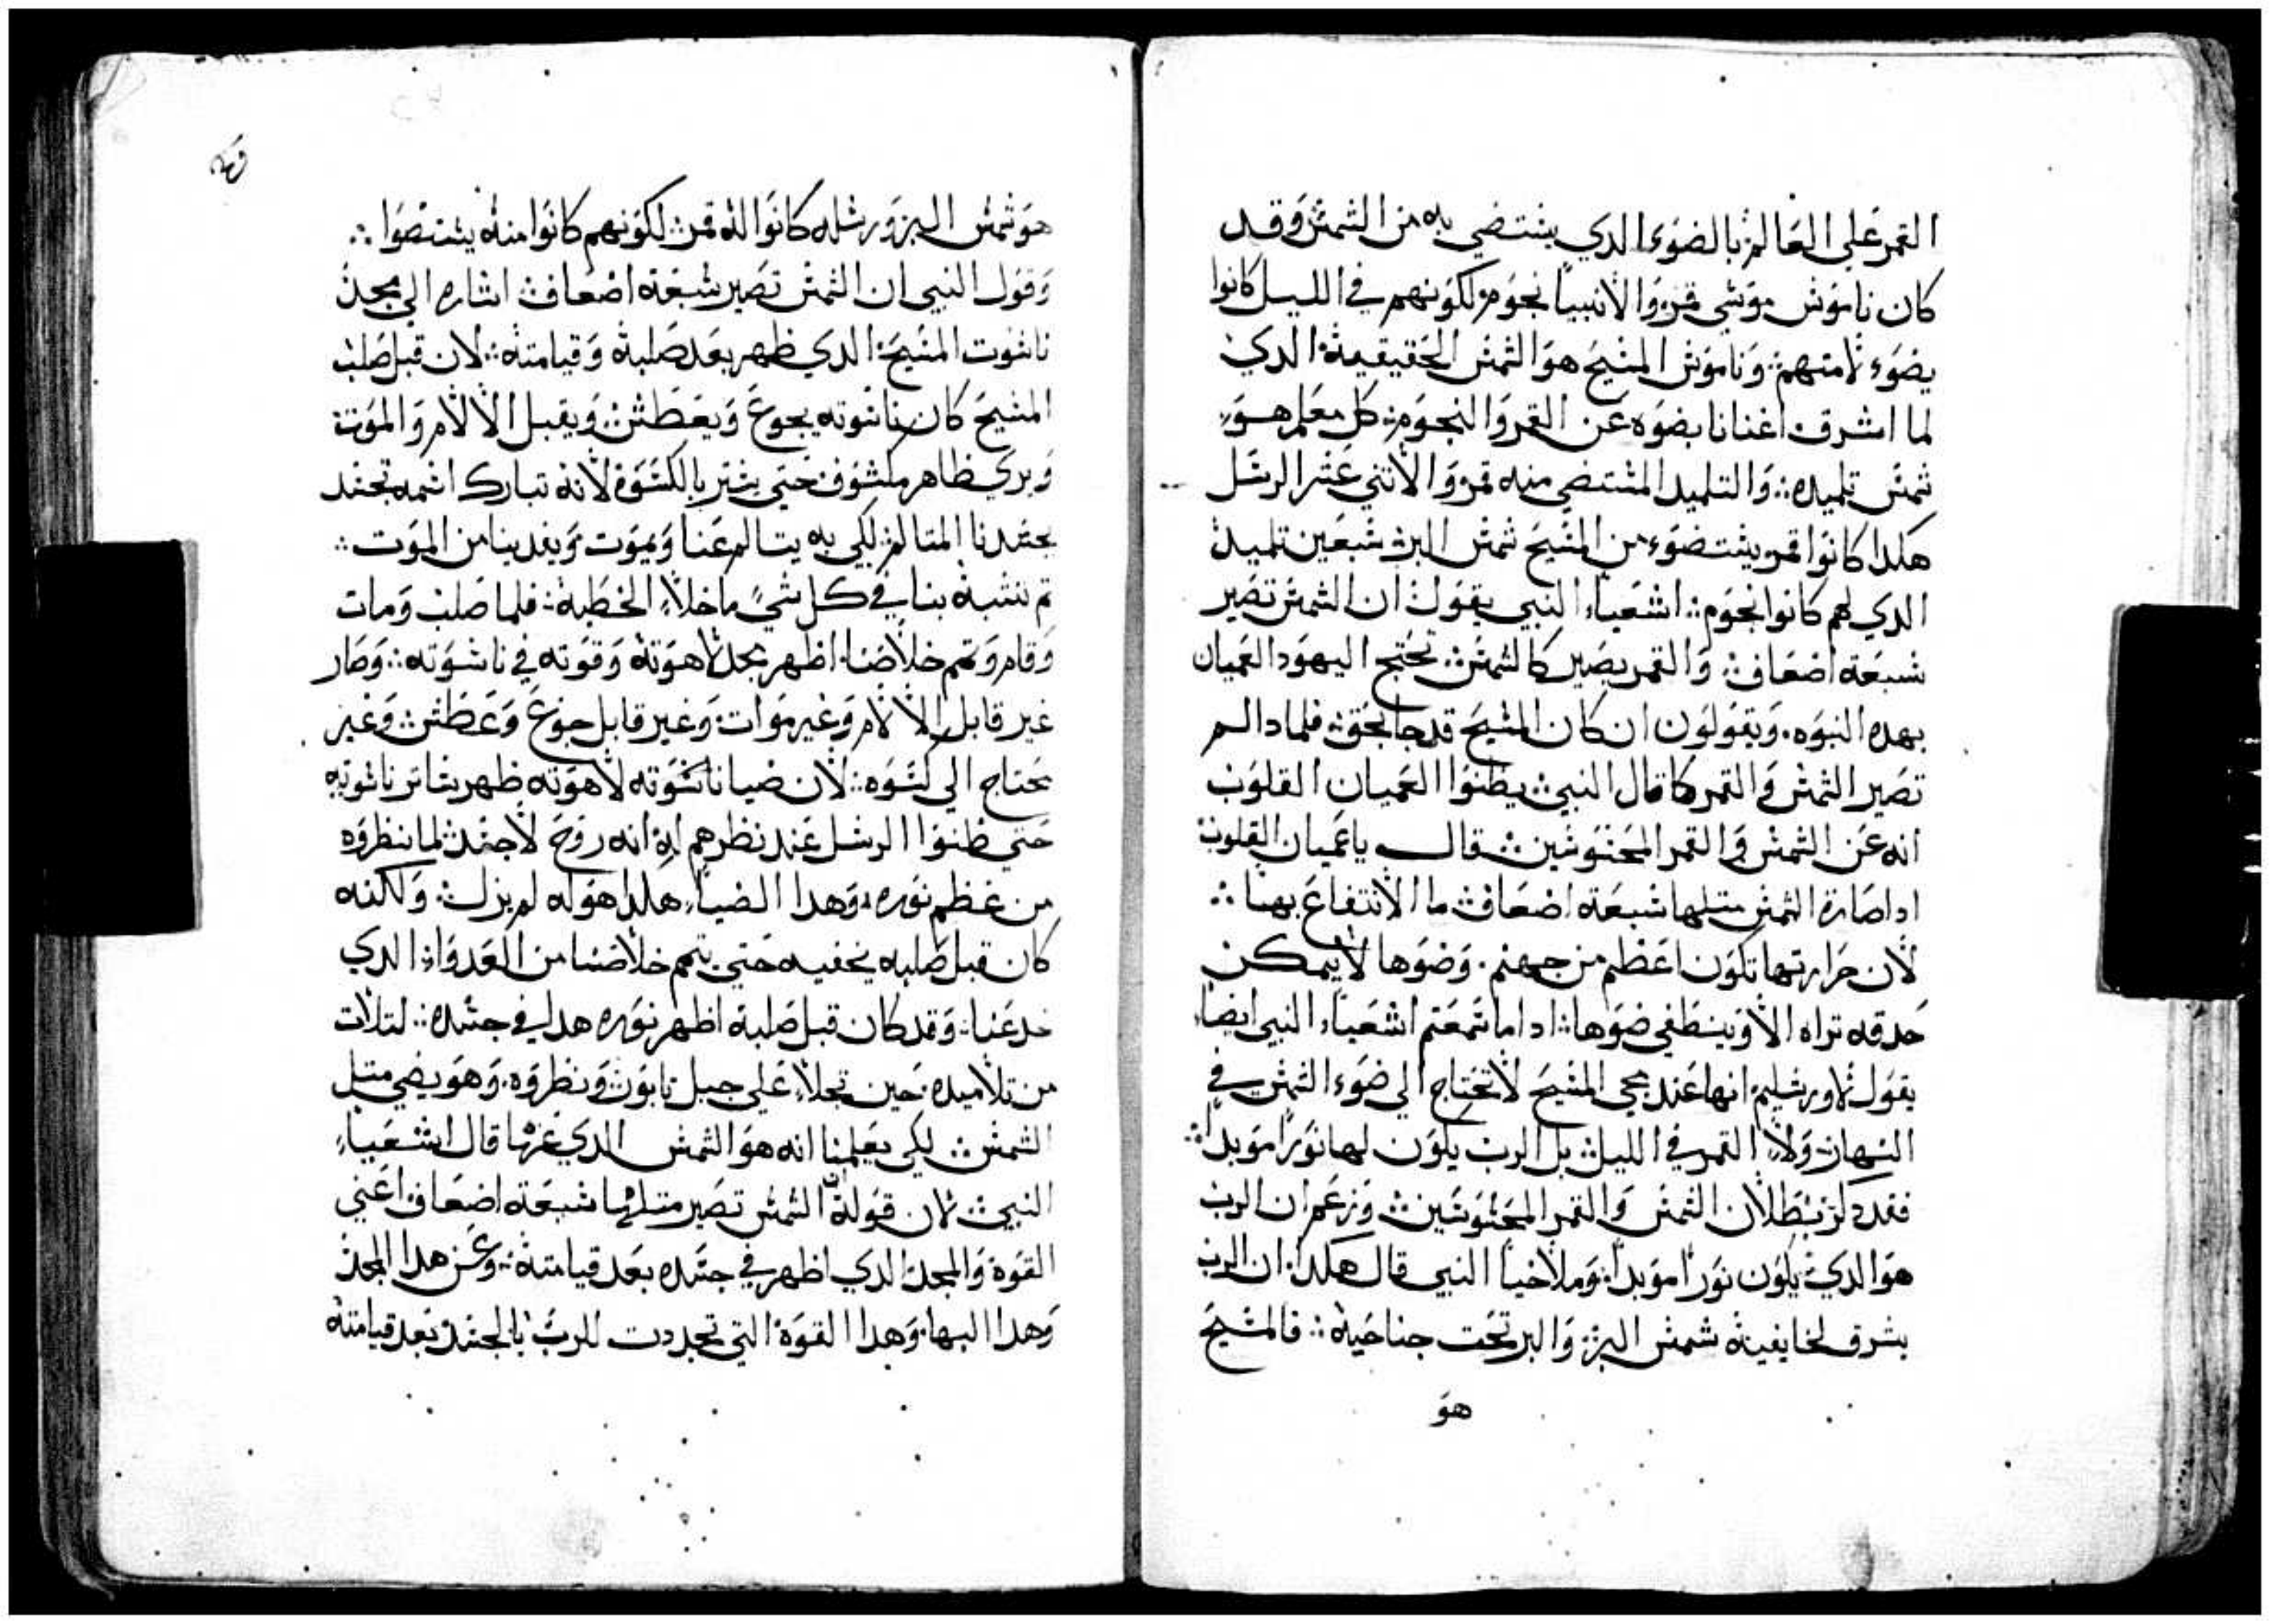 القمر على العالم بالضوء الدي يستضي به من الشمس وقد
كان ناموس موسي قمر والانبيا نجوم لكونهم في الليل كانوا
يضوء لامتهم وناموس المسيح هو الشمس الحقيقية الدي
لما اشرف اغنانا بضوه عن القمر والنجوم كل معلم هو
شمس تلميده والتلميد المستضي منه قمر والاتني عشر الرسل
هكدا كانوا قمر يستضوء من المسيح شمس البر سبعين تلميد
الدي لهم كانوا نجوم اشعياء النبي يقول ان الشمس تصير
سبعة اضعاف والقمر يصير كالشمس تحتج اليهود العميان
بهده النبوه ويقولون ان كان المسيح قد جا بحق فلمادا لم
تصير الشمس والقمر كما قال النبي يظنوا العميان القلوب
انه عن الشمس والقمر المحسوسين قال يا عميان القلوب
ادا صارة الشمس متلها سبعة اضعاف ما الانتفاع بها
لان حرارتها تكون اعظم من جهنم وضوها لا يمكن
حدقه تراه الا وينطفي ضوها ادا ما سمعتم اشعياء النبي ايضاً
يقول لاورشليم انها عند مجي المسيح لا تحتاج الي ضوء الشمس في
النهار ولا القمر في الليل بل الرب يكون لها نوراً موبداً
فقد دكر بطلان الشمس والقمر المحسوسين وزعم ان الرب
هو الدي يكون نوراً موبداً وملاخيا النبي قال هكدا ان الرب
يشرق لخايفيه شمس البر والبر تحت جناحيه فالمسيح
هو
هو شمس البر ورسله كانوا له قمر لكونهم كانوا منه يستضوا
وقول النبي ان الشمس تصير سبعة اضعاف اشاره الي مجد
ناسوت المسيح الدي ظهر بعد صلبه وقيامته لان قبل صلب
المسيح كان ناسوته يجوع ويعطش ويقبل الالام والموت
ويري ظاهر مكشوف حتي يستر بالكسوة لانه تبارك اسمه تجسد
بجسدنا المتالم لكي به يتالم عنا ويموت ويفدينا من الموت
تم تشبه بنا في كل شيً ما خلاء الخطية فلما صلب ومات
وقام وتمم خلاصنا اظهر مجد لاهوته وقوته في ناسوته وصار
غير قابل الالام وغير موات وغير قابل جوع وعطش وغير
محتاج الي كسوه لان ضيا ناسوته لاهوته ظهر ساتر ناسوته
حتي ظنوا الرسل عند نظرهم له انه روح لا جسد لما ينظروه
من عظم نوره وهدا الضياء هكدا هو له لم يزل ولكنه
كان قبل صلبه يخفيه حتي يتمم خلاصنا من العدو الدي
خدعنا وقد كان قبل صلبه اظهر نوره هدا في جسده لتلات
من تلاميده حين تجلاء علي جبل تابور ونظروه وهو يضي متل
الشمس لكي يعلمنا انه هو الشمس الدي عنها قال اشعياء
النبي لان قوله ان الشمس تصير متلها سبعة اضعاف اعني
القوة والمجد الدي اظهر في جسده بعد قيامته وعن هدا المجد
وهدا البها وهدا القوة التي تجددت للرب بالجسد بعد قيامته